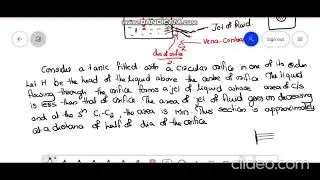 BANDICAM
Jet of fluid
C2
Vena-Contra
dia of orifice
2
Consider a tank fitted with a circular orifice in one of its sides
Let H be the head of the liquid above the centre of orifice. The liquid
flowing through the orifice forms a jet of liquid whose area of c/s
is less than that of orifice. The area of jet of fluid goes on decreasing
and at the sn C1-C2, the area is min. This section is approximately
at a distance of half of dia of the orifice
clideo.com